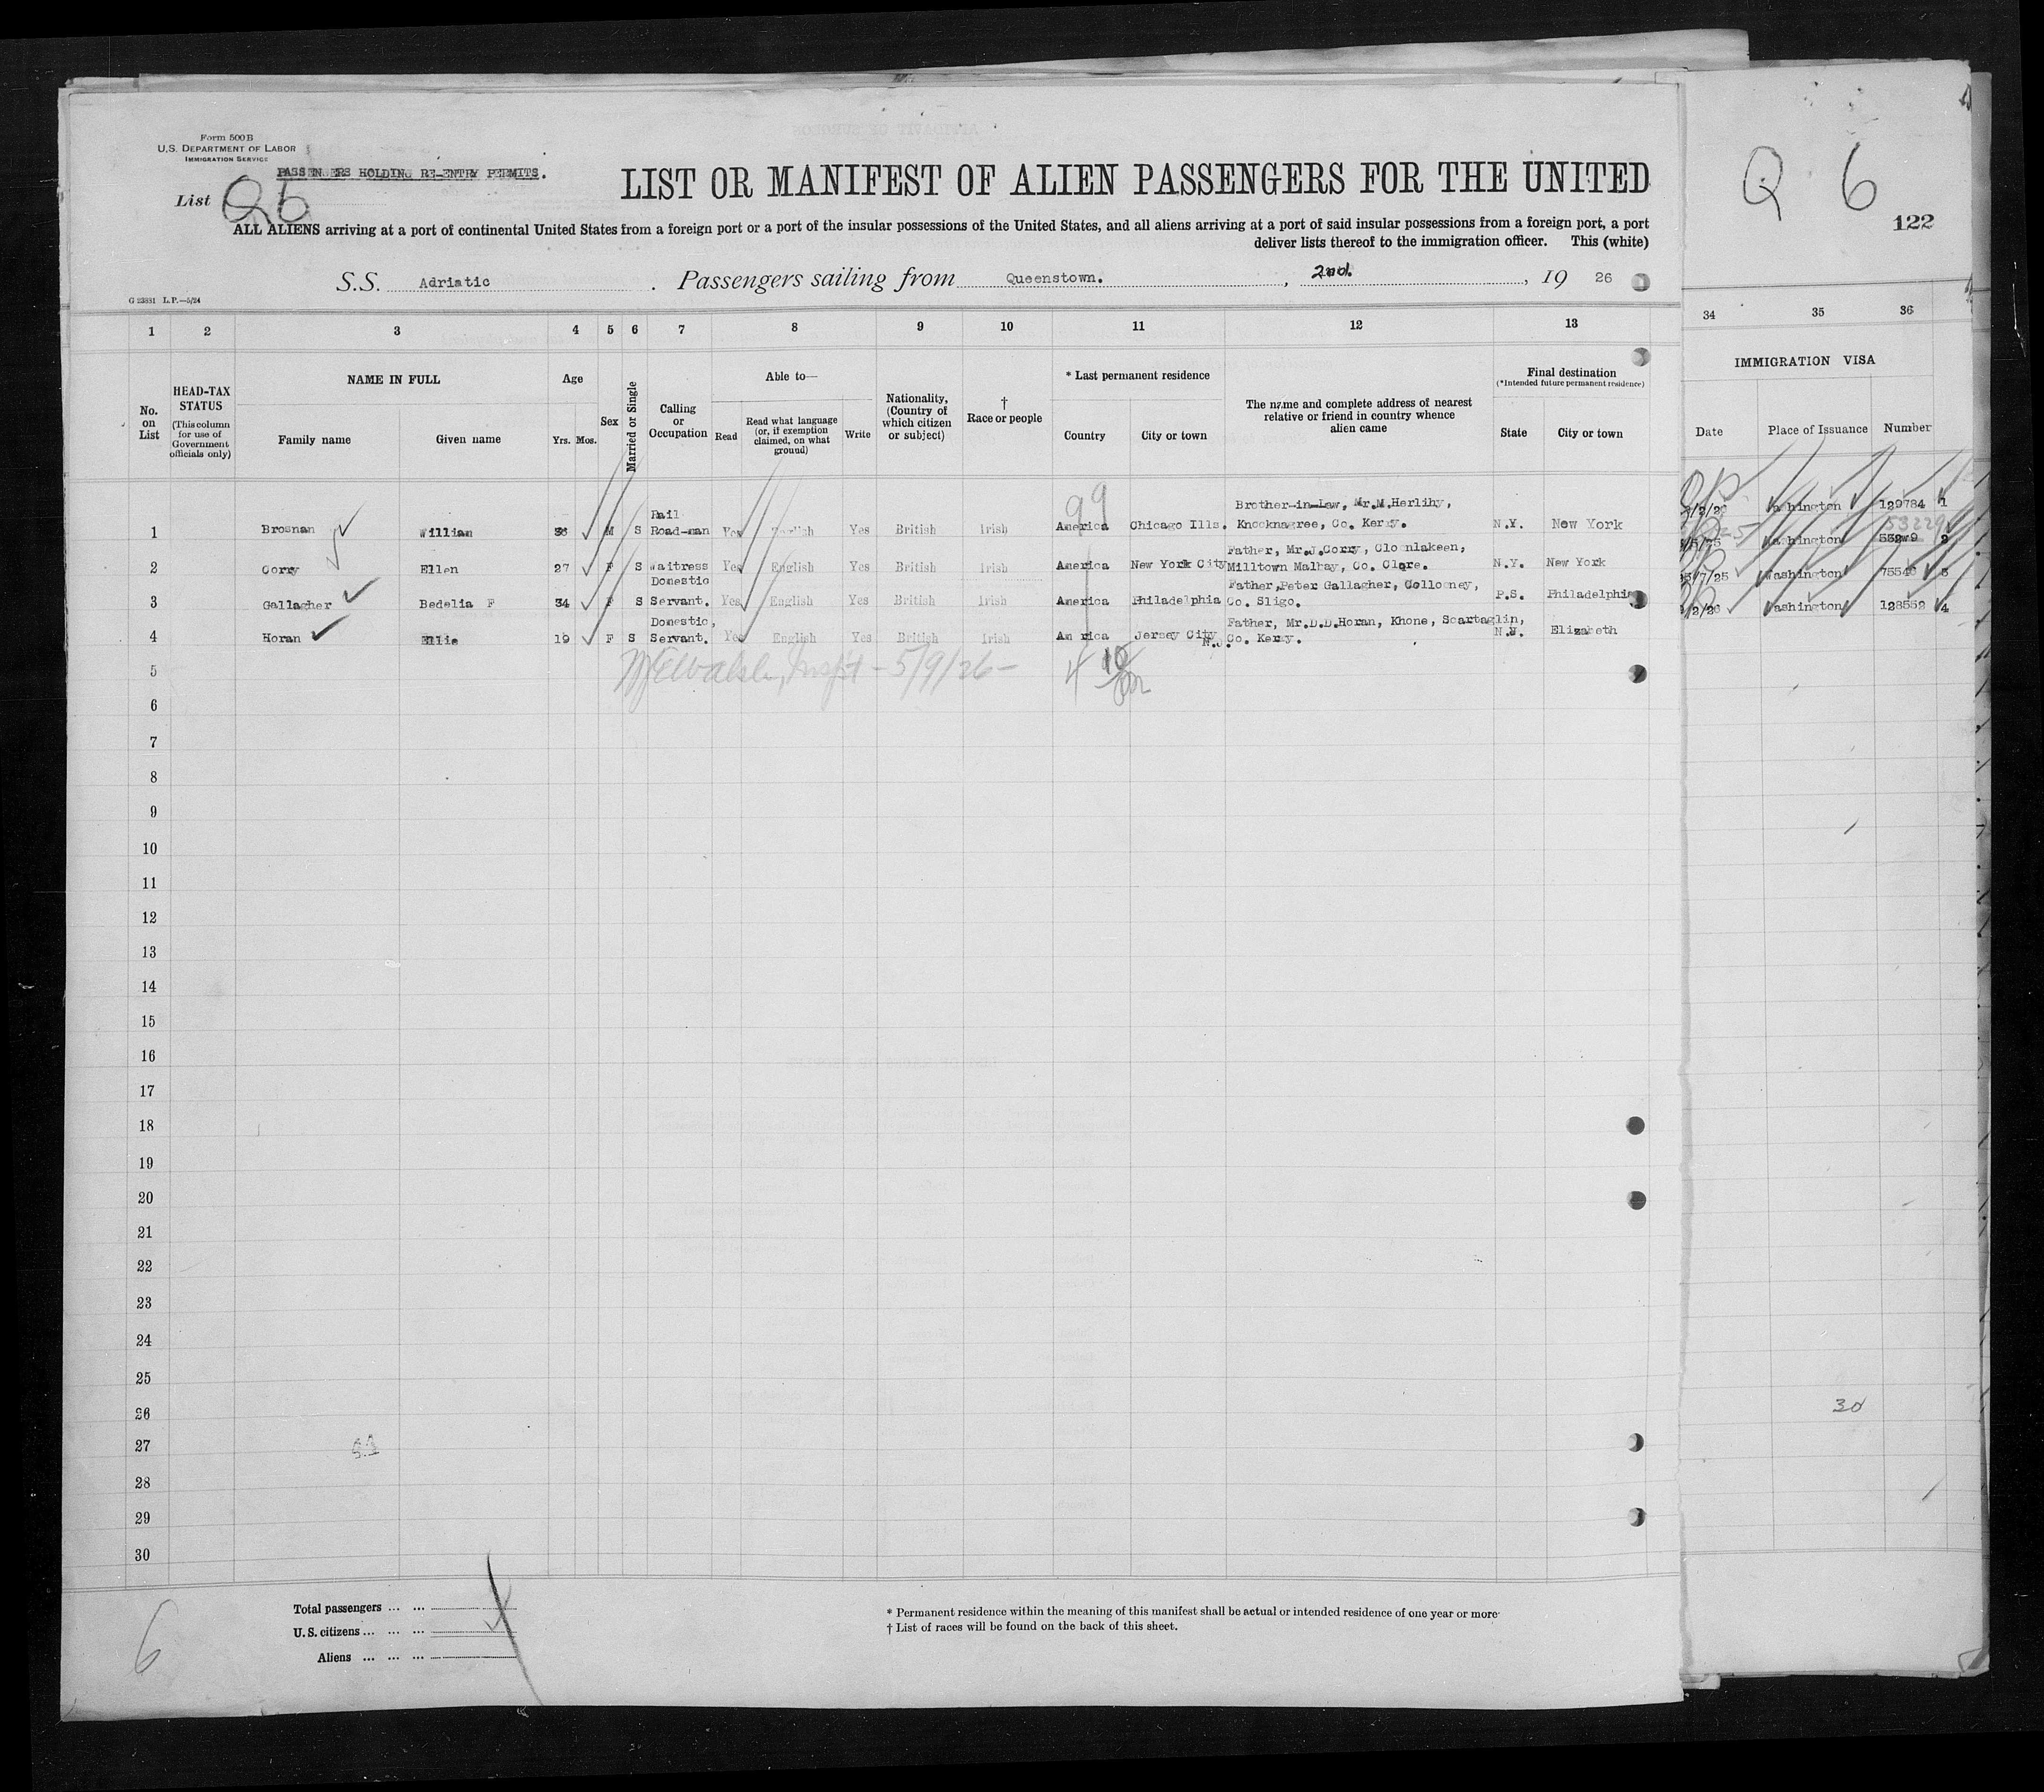 Form 500 B
U.S. DEPARTMENT OF LABOR
IMMIGRATION SERVICE
PASSENGERS HOLDING RE-ENTRY PERMITS.
List Q6
LIST OR MANIFEST OF ALIEN PASSENGERS FOR THE UNITED
Q 6
122
ALL ALIENS arriving at a port of continental United States from a foreign port or a port of the insular possessions of the United States, and all aliens arriving at a port of said insular possessions from a foreign port, a port
deliver lists thereof to the immigration officer. This (white)
S.S. Adriatic . Passengers sailing from Queenstown. , 2nd. , 19 26
G 23831 L.P.—5/24
1 2 3 4 5 6 7 8 9 10 11 12 13 34 35 36
No. on List
HEAD-TAX STATUS
(This column for use of Government officials only)
NAME IN FULL
Family name Given name
Age
Yrs. Mos.
Sex
Married or Single
Calling or Occupation
Able to—
Read
Read what language (or, if exemption claimed, on what ground)
Write
Nationality, (Country of which citizen or subject)
† Race or people
* Last permanent residence
Country City or town
The name and complete address of nearest relative or friend in country whence alien came
Final destination
(*Intended future permanent residence)
State City or town
IMMIGRATION VISA
Date Place of Issuance Number
99
1 Brosnan William 36 M S Rail Road-man Yes English Yes British Irish America Chicago Ills. Brother-in-Law, Mr.M.Herlihy, Knocknagree, Co. Kerry. N.Y. New York Washington 129784 1
53229
2 Corry Ellen 27 F S Waitress Yes English Yes British Irish America New York City Father, Mr.J.Corry, Cloonlakeen, Milltown Malbay, Co. Clare. N.Y. New York Washington 2
3 Gallagher Bedelia F 34 F S Domestic Servant. Yes English Yes British Irish America Philadelphia Father,Peter Gallagher, Collooney, Co. Sligo. P.S. Philadelphia Washington 75540
4 Horan Ellie 19 F S Domestic, Servant. Yes English Yes British Irish America Jersey City N.J. Father, Mr.D.D.Horan, Khone, Scartaglin, Co. Kerry. Elizabeth Washington 128552 4
5 Walsh, Insp't - 5/9/26 - 4 10
6
7
8
9
10
11
12
13
14
15
16
17
18
19
20
21
22
23
24
25
26 30
27
28
29
30
6
Total passengers ... ...
U.S. citizens ... ... ...
Aliens ... ... ...
* Permanent residence within the meaning of this manifest shall be actual or intended residence of one year or more
† List of races will be found on the back of this sheet.